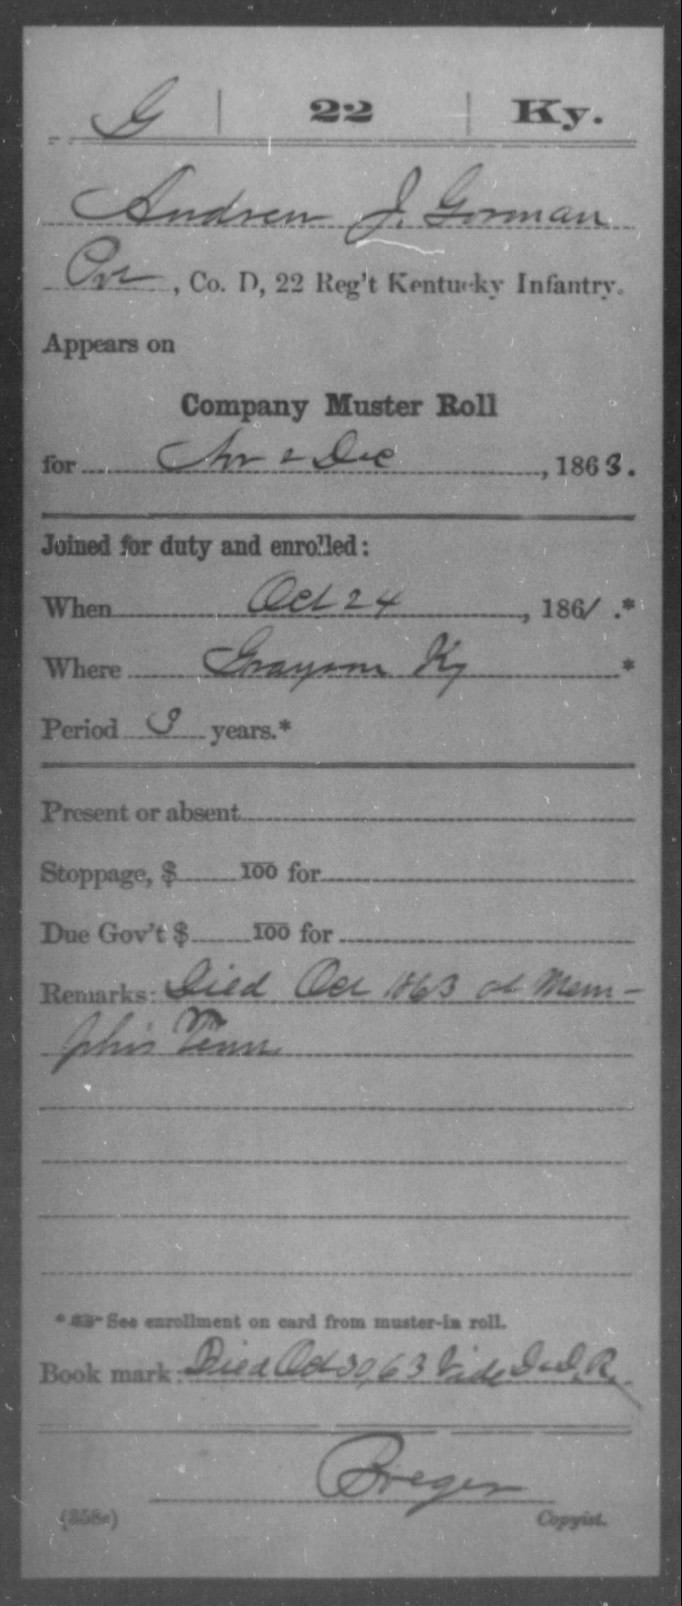 G | 22 | Ky.
Andrew J. Gorman
Pvt, Co. D, 22 Reg't Kentucky Infantry.
Appears on
Company Muster Roll
for Nov & Dec, 1863.
Joined for duty and enrolled:
When Oct 24, 1861.*
Where Grayson Ky *
Period 3 years.*
Present or absent
Stoppage, $ 100 for
Due Gov't $ 100 for
Remarks: Died Oct 1863 at Mem-
phis Tenn
* See enrollment on card from muster-in roll.
Book mark: Died Oct 30, 63 Vide R.
Breger
(358c) Copyist.